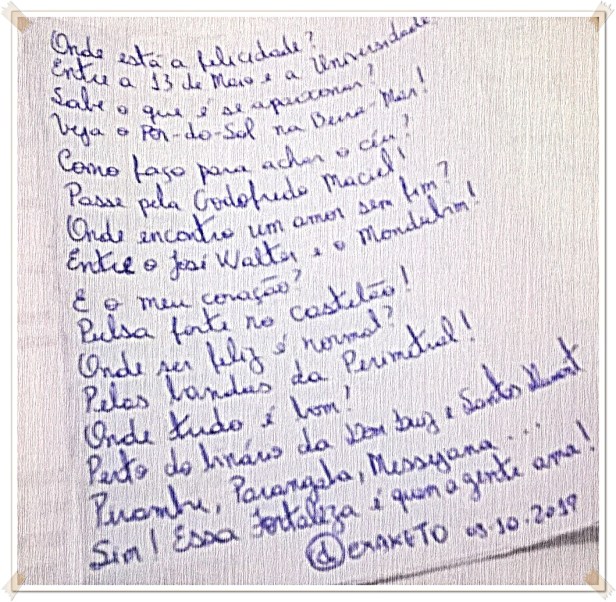 Onde está a felicidade?
Entre a 13 de Maio e a Universidade,
Sabe o que é se apaixonar?
Veja o Pôr-do-Sol na Beira-Mar!
Como faço para achar o céu?
Passe pela Godofredo Maciel!
Onde encontro um amor sem fim?
Entre o José Walter e o Mondubim!
E o meu coração?
Pulsa forte no Castelão!
Onde ser feliz é normal?
Pelas bandas da Perimetral!
Onde tudo é bom?
Perto do binário da Dom Luiz e Santos Dumont
Pirambu, Parangaba, Messejana...
Sim! Essa Fortaleza é quem a gente ama!
ERAKETO 09.10.2019